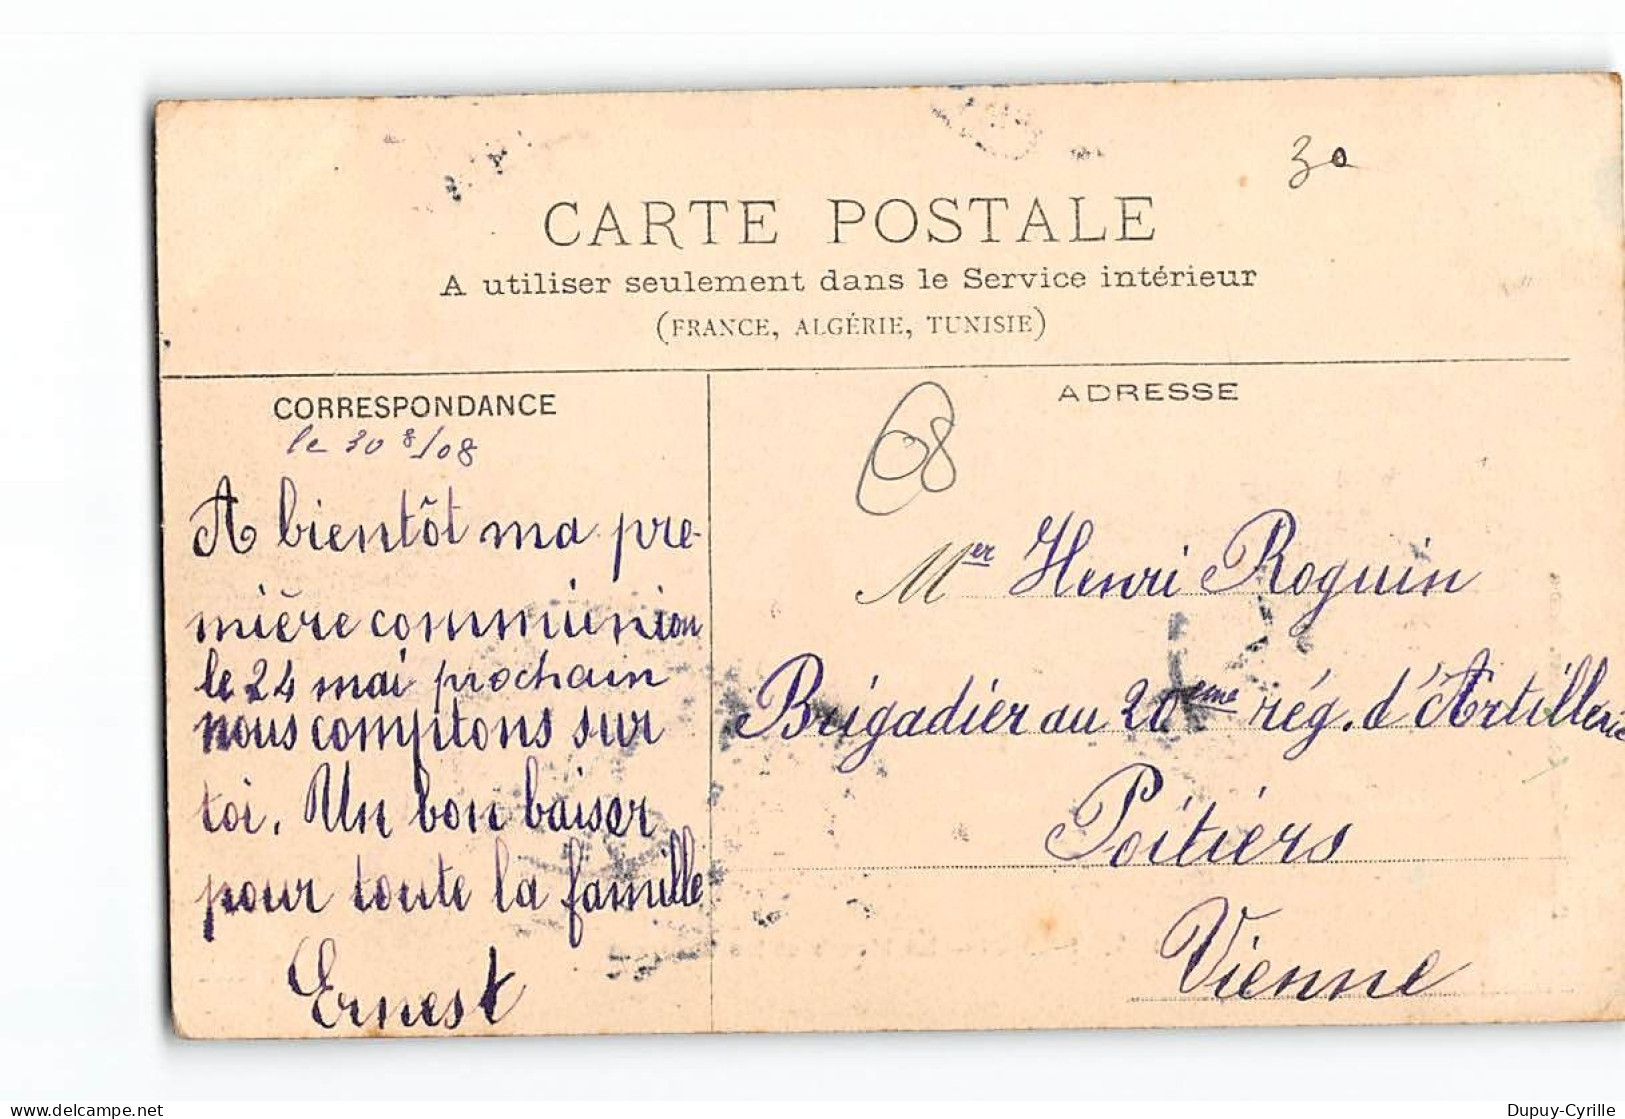 30
CARTE POSTALE
A utiliser seulement dans le Service intérieur
(FRANCE, ALGÉRIE, TUNISIE)
CORRESPONDANCE
le 30 8/08
A bientôt ma pre-
mière communion
le 24 mai prochain
nous comptons sur
toi. Un bon baiser
pour toute la famille
Ernest
ADRESSE
08
Mer Henri Roguin
Brigadier au 20eme rég. d'Artillerie
Poitiers
Vienne
delcampe.net
Dupuy-Cyrille